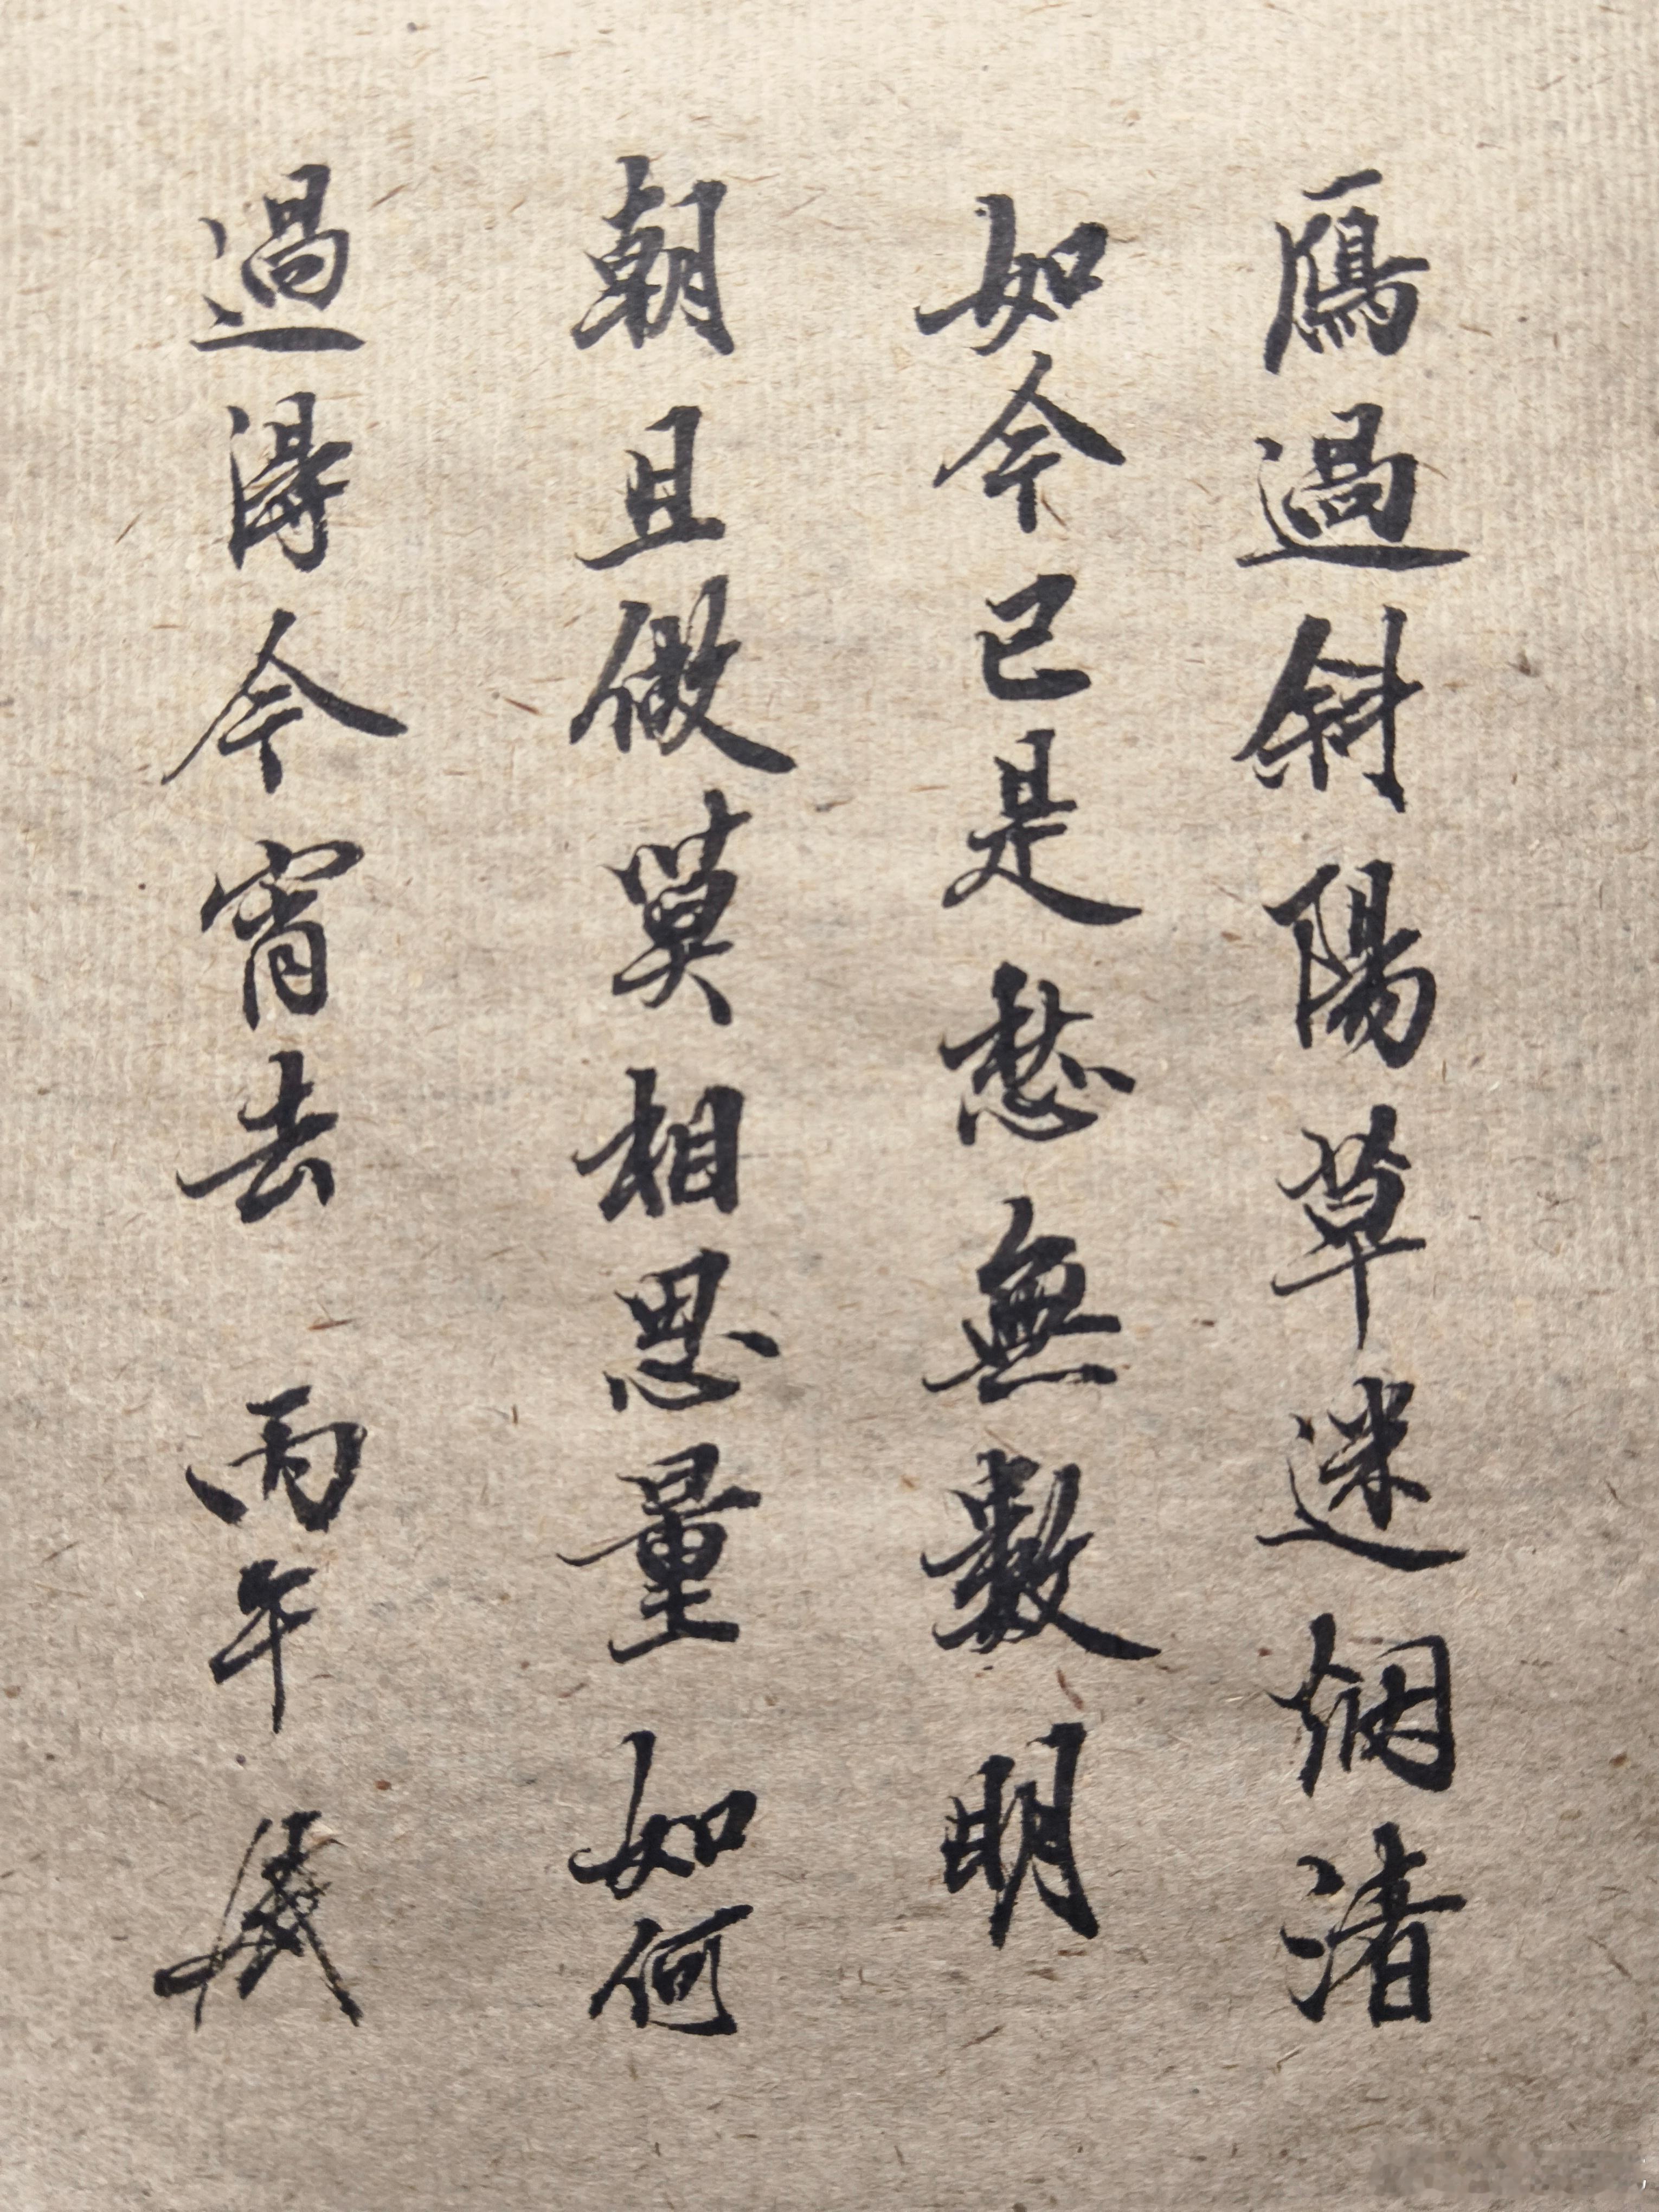 鴈過斜陽草迷烟渚
如今已是愁無數明
朝且做莫相思量如何
過得今宵去 丙午